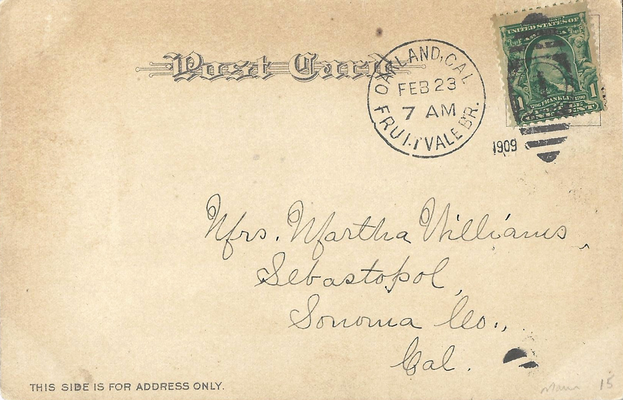 Post Card
OAKLAND, CAL.
FEB 23
7 AM
FRUITVALE BR.
1909
UNITED STATES OF
1 FRANKLIN 1
ONE CENT
Mrs. Martha Williams,
Sebastopol,
Sonoma Co.,
Cal.
THIS SIDE IS FOR ADDRESS ONLY.
15